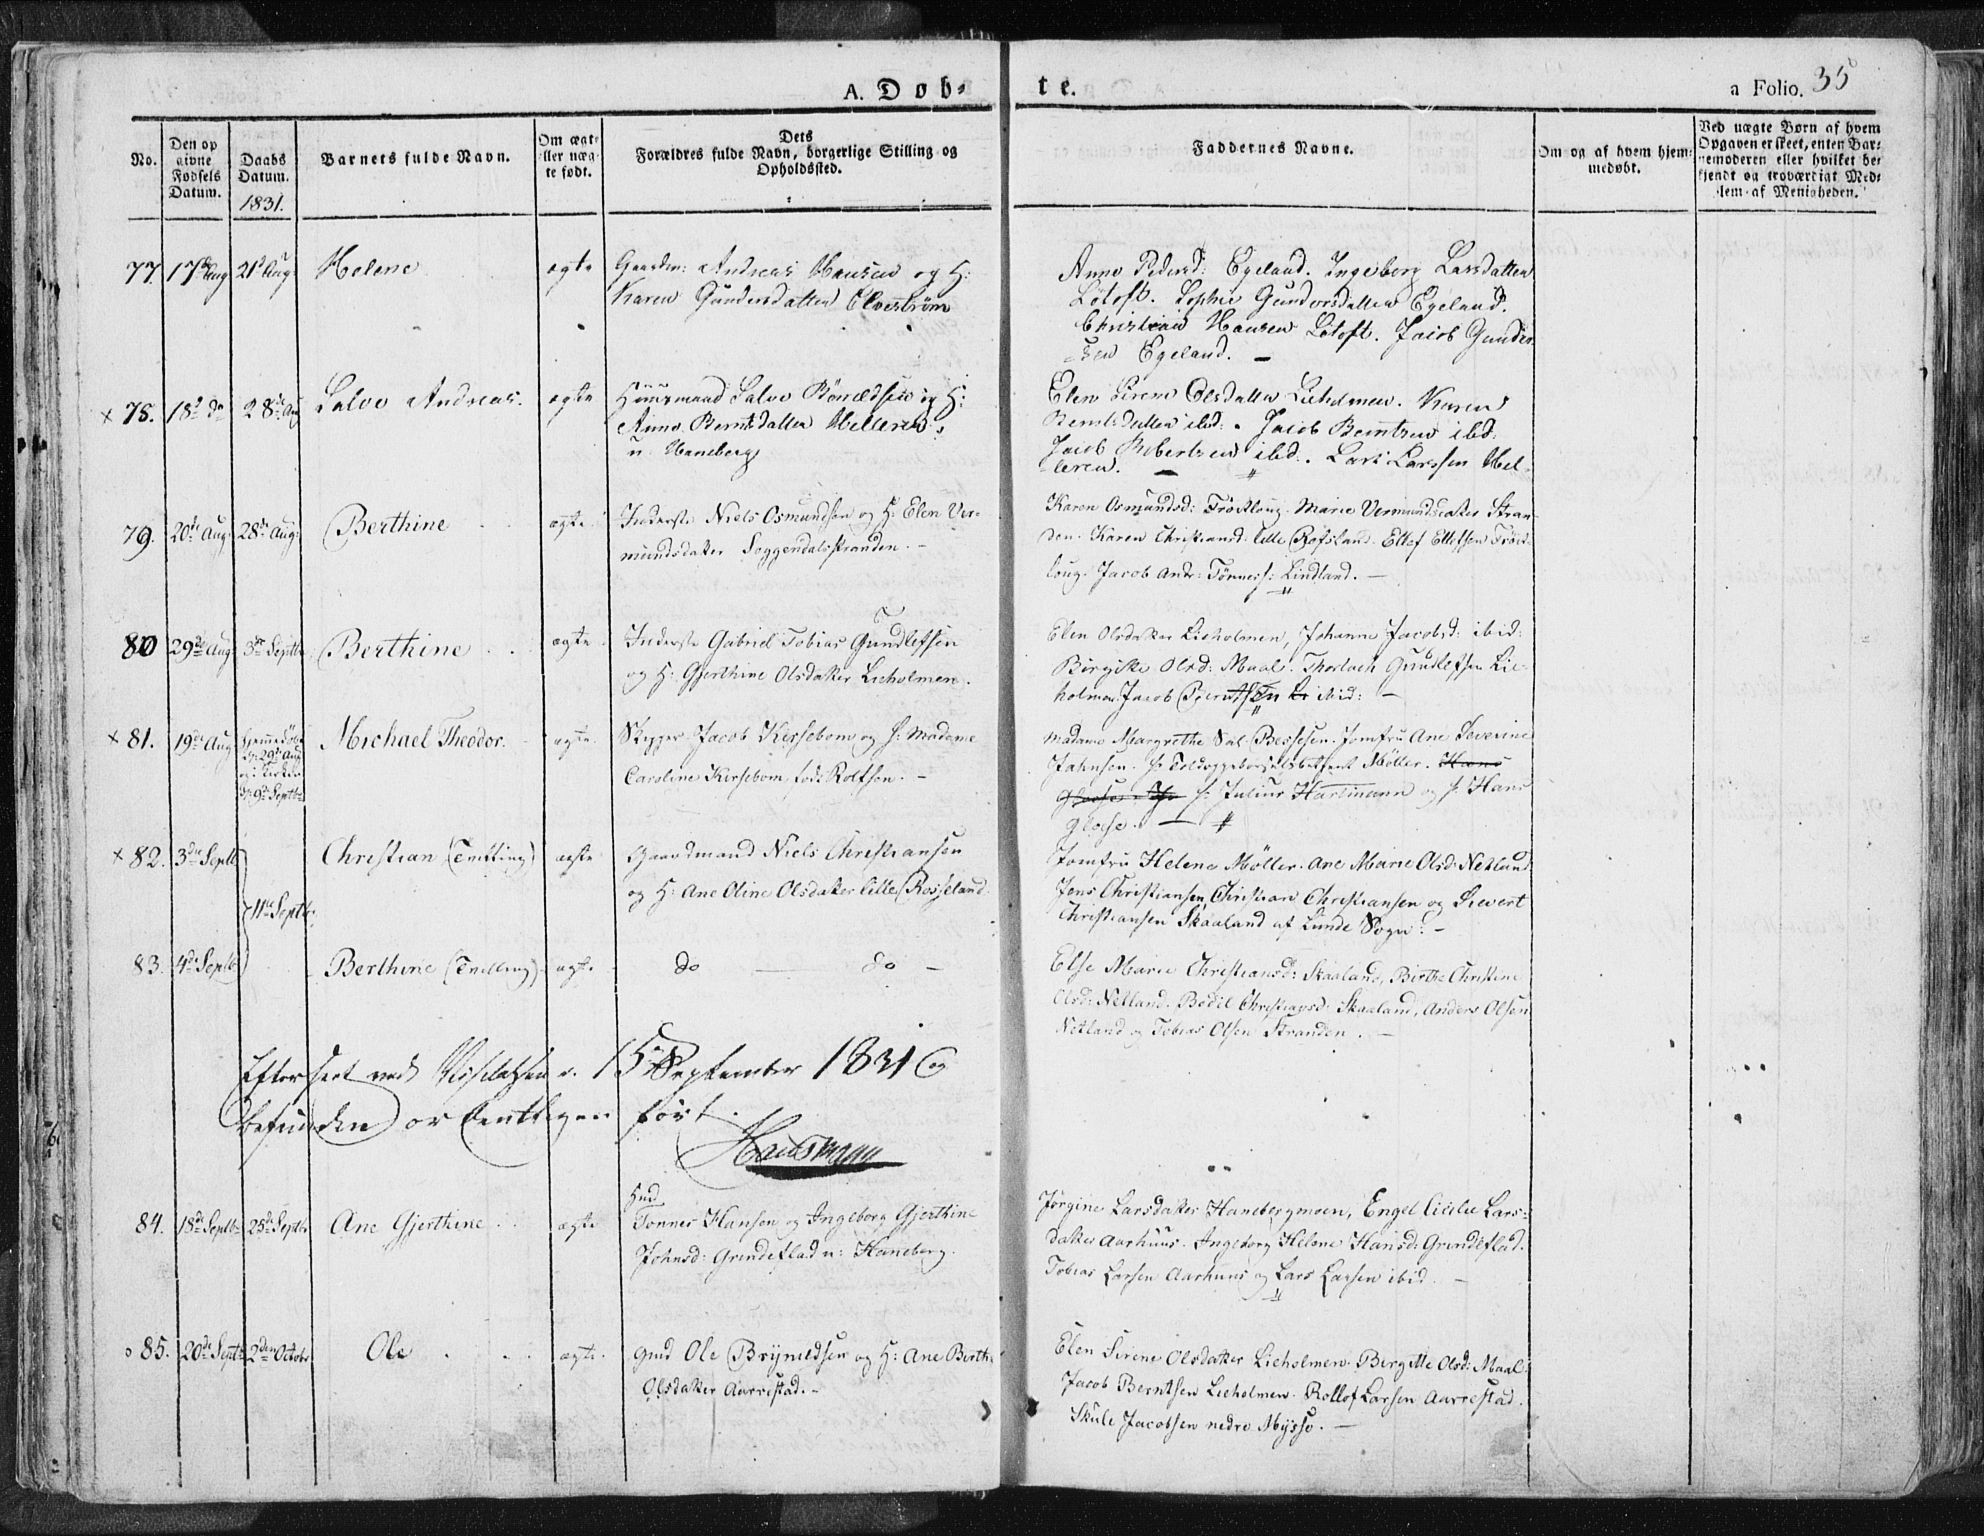 A. Døb-
te.
a Folio. 35
No.
Den op
givne
Fødsels
Datum.
Daabs
Datum.
1831.
Barnets fulde Navn.
Om ægte
eller uæg-
te født.
Dets
Forældres fulde Navn, borgerlige Stilling og
Opholdssted.
Faddernes Navne.
Om og af hvem hjem-
medøbt.
Ved uægte Børn af hvem
Opgaven er skeet, enten Bar-
nemoderen eller hvilket be-
kjendt og troværdigt Med-
lem af Menigheden.
77. 17de Aug 21de Aug: Helene ægte Gaardm: Andreas Hansen og H:
Karen Gundersdatter Elvestrøm
Anne Pedersd: Egeland. Ingeborg Larsdatter
Løtoft. Sophie Gundersdatter Egeland.
Christian Hansen Løtoft. Jacob Gunder-
sen Egeland. –
x 78. 18de do 28de Aug Salve Andreas. ægte Huusmand Salve Børildsen og H:
Anne Berntsdatter Helleren
u: Haneberg
Elen Sirene Olsdatter Lieholmen. Karen
Berntsdatter ibid: Jacob Berntsen ibid:
Jacob Robertsen ibid. Lars Larssen Hel-
leren. –
79. 20de Aug: 28de Aug: Berthine ægte Inderste Niels Osmundsen og H: Elen Ver-
mundsdatter Soggendalsstranden. –
Karen Osmundsd: Frøitloug. Marie Vermundsdatter Stran-
den. Karen Christiansd: lille Rofsland. Ellef Ellefsen Frøit-
loug. Jacob Andr: Tønness: Lindland. –
80 29de Aug: 3de Septbr Berthine ægte Inderste Gabriel Tobias Gundlefsen
og H: Gjerthine Olsdatter Lieholmen.
Elen Olsdatter Lieholmen, Johanne Jacobsd: ibid:
Birgitte Olsd: Maal. Thorlach Gundlefsen Lie-
holmen Jacob Berntsen ibid: –
x 81. 19de Aug Hjemmedøbt
d: 29de Aug
og i Kirken
d: 9de Septbr Michael Theodor. ægte Skipper Jacob Kirsebom og H: Madame
Caroline Kirsebom, fød: Rolfsen. –
Madame Margrethe Sal: Bessesen. Jomfru Ane Severine
Jahnsen. Hr Toldoppebørselsbetjent Møller. Hans
Gloese Hr Julius Hartmann og Hr Hans
Gloese. –
x 82. 3de Septb 11te Septbr: Christian (Tvilling) ægte Gaardmand Niels Christiansen
og H: Ane Oline Olsdatter lille Rosseland
Jomfru Helene Møller. Ane Marie Olsd: Netland
Jens Christiansen, Christian Christiansen og Sievert
Christiansen Skaaland af Lunde Sogn. –
83. 4de Septb Berthine (Tvilling) ægte do – do –
Else Marie Christiansd: Skaaland, Birthe Christine
Olsd: Netland. Bodil Christiansd: Skaaland, Anders Olsen
Netland og Tobias Olsen Stranden. –
Efterseet ved Visitatsen d. 15 September 1831 og
befunden ordentligen ført.
Hansmann
84. 18de Septbr 25de Septbr Ane Gjerthine ægte Hmd
Tønnes Hansen og Ingeborg Gjerthine
Johnsd: Grindeflad u: Haneberg.
Jørgine Larsdatter Hanebergmoen, Engel Cicilie Lars-
datter Aarhuus. Ingeborg Helene Hansd: Grindeflad.
Tobias Larsen Aarhuus og Lars Larsen ibid. –
o 85. 20de Septb 2den Octobr Ole ægte. Gmd Ole Brynildsen og H: Ane Berthe
Olsdatter Aarrestad. –
Elen Sirene Olsdatter Lieholmen. Birgitte Olsd: Maal
Jacob Berntsen Lieholmen. Rollof Larsen Aarrestad.
Skule Jacobsen nedre Mysse. –